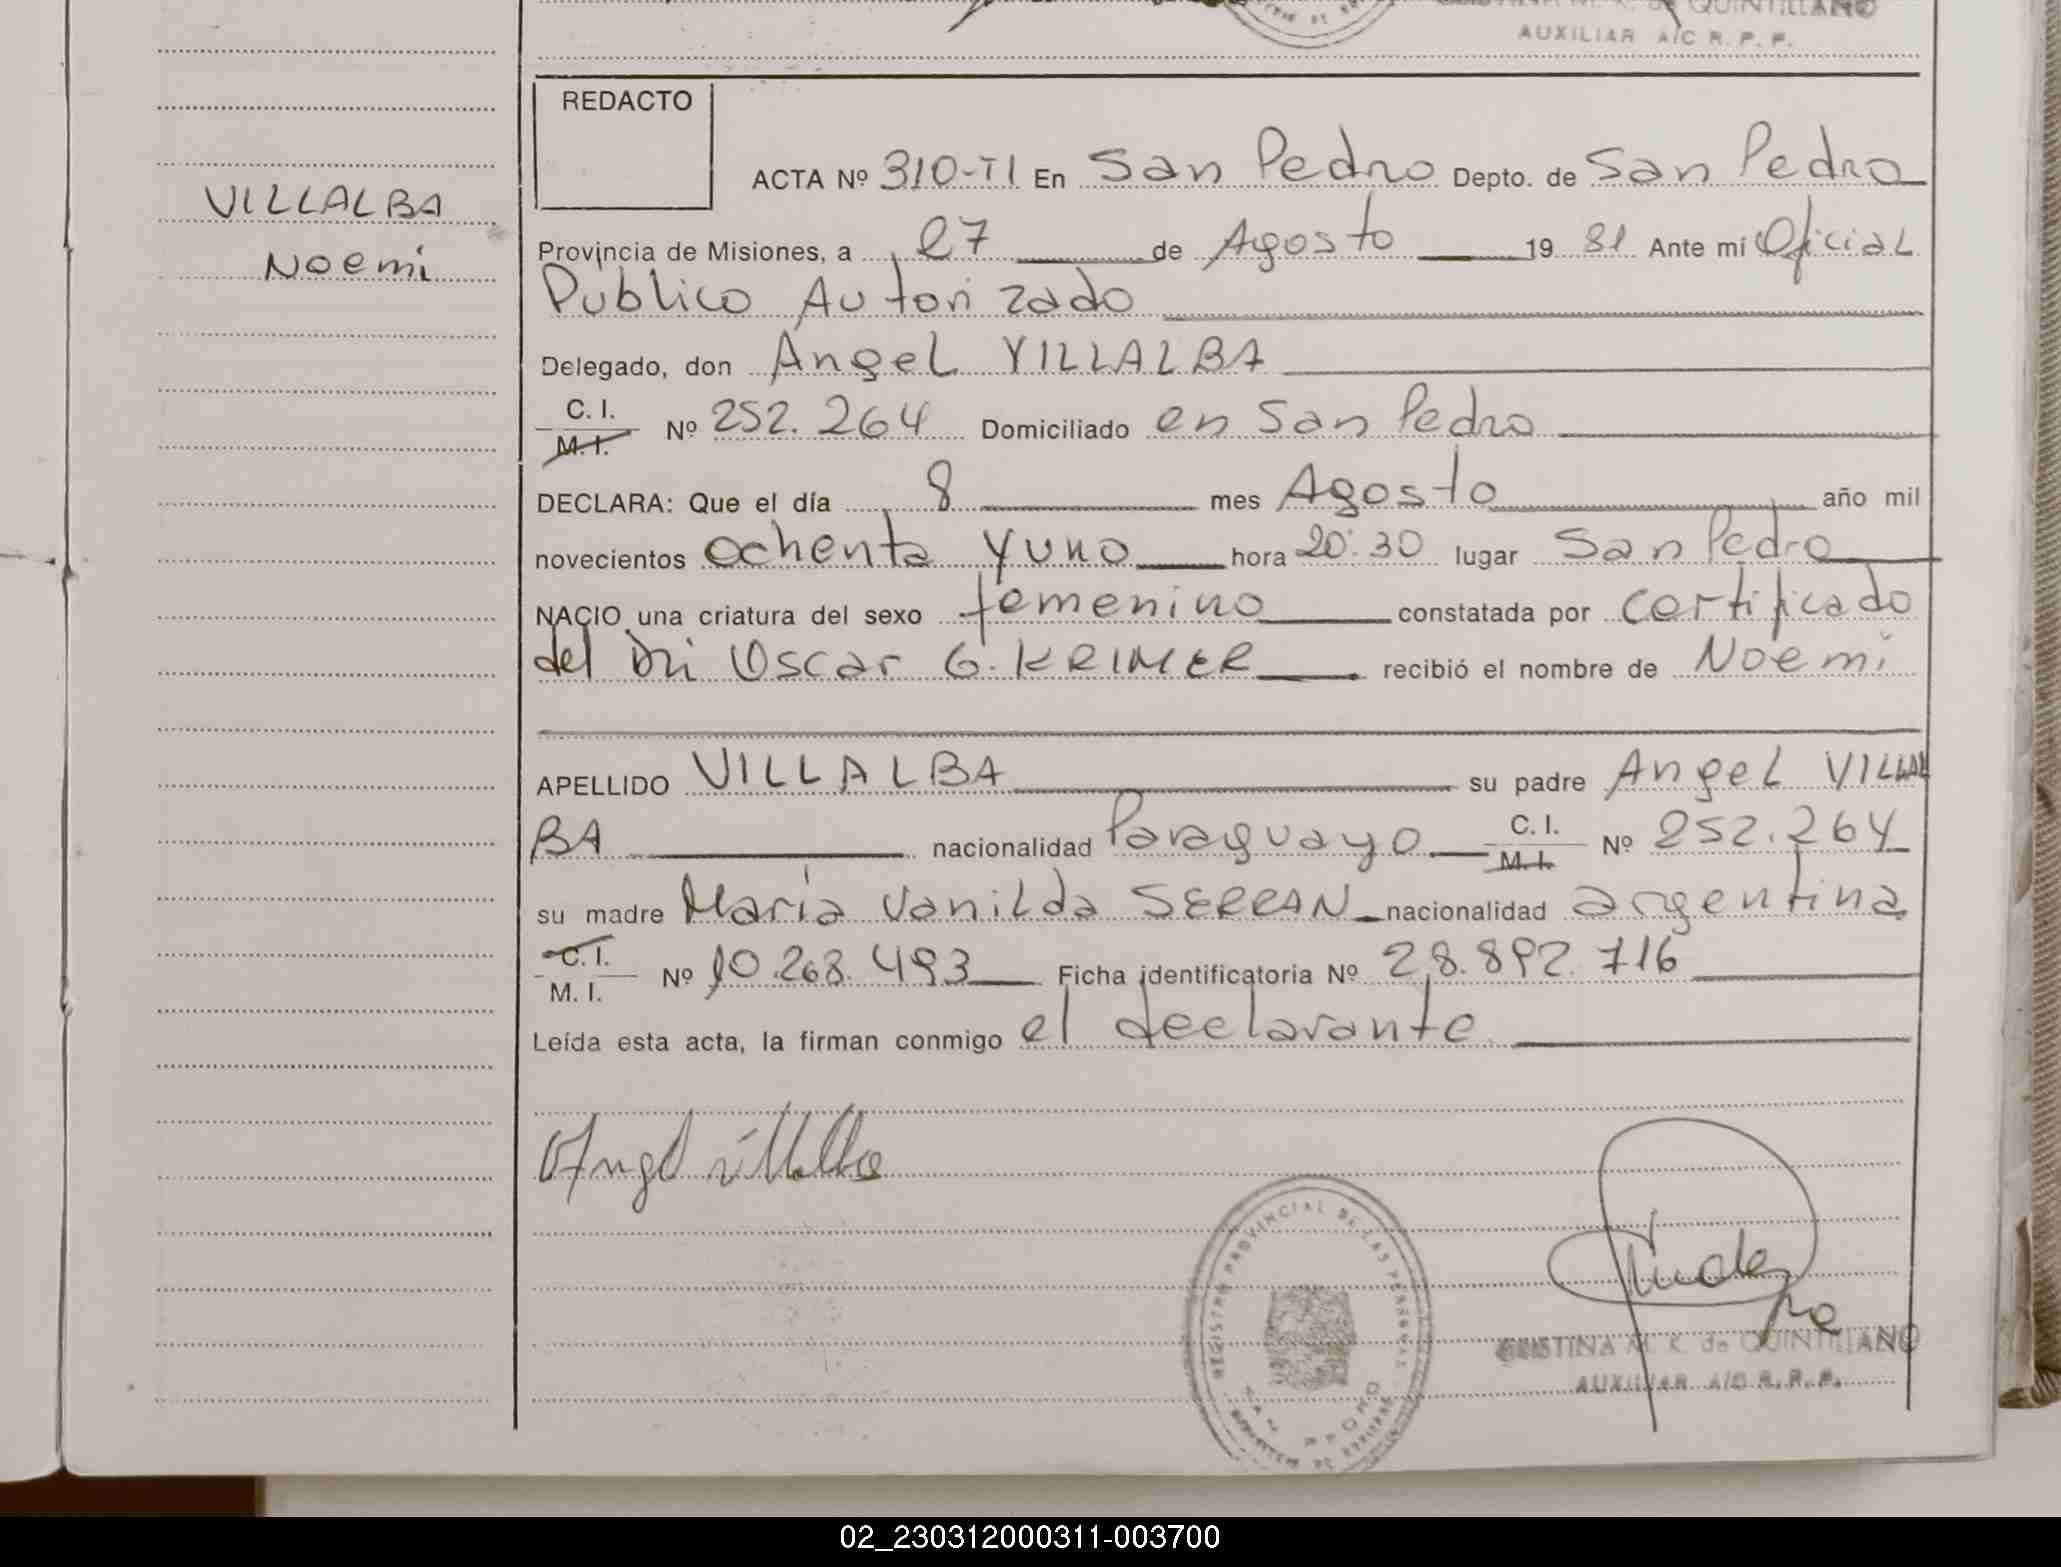 QUINTILLANO
AUXILIAR A/C R. P. P.
REDACTO
ACTA Nº 310-TI En San Pedro Depto. de San Pedro
VILLALBA
Noemi
Provincia de Misiones, a 27 de Agosto 1981 Ante mí Oficial
Publico Autorizado
Delegado, don Angel VILLALBA
C. I.
M. I.
Nº 252.264 Domiciliado en San Pedro
DECLARA: Que el día 8 mes Agosto año mil
novecientos ochenta y uno hora 20:30 lugar San Pedro
NACIO una criatura del sexo femenino constatada por certificado
del Dr. Oscar G. KRIMER recibió el nombre de Noemi
APELLIDO VILLALBA su padre Angel VILLAL
BA nacionalidad Paraguayo C. I. M. I. Nº 252.264
su madre María Vanilda SERRAN nacionalidad argentina
C. I.
M. I.
Nº 10.268.493 Ficha identificatoria Nº 28.892.716
Leída esta acta, la firman conmigo el declarante
Angel Villalba
REGISTRO PROVINCIAL DE LAS PERSONAS
SAN PEDRO
CRISTINA M. K. de QUINTILLANO
AUXILIAR A/C R. P. P.
02_230312000311-003700